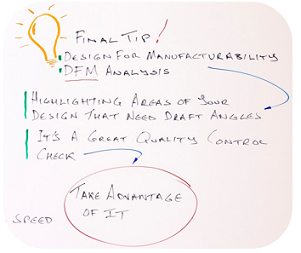 FINAL TIP!
DESIGN FOR MANUFACTURABILITY
DFM ANALYSIS
HIGHLIGHTING AREAS OF YOUR
DESIGN THAT NEED DRAFT ANGLES
IT'S A GREAT QUALITY CONTROL
CHECK
TAKE ADVANTAGE
OF IT
SPEED